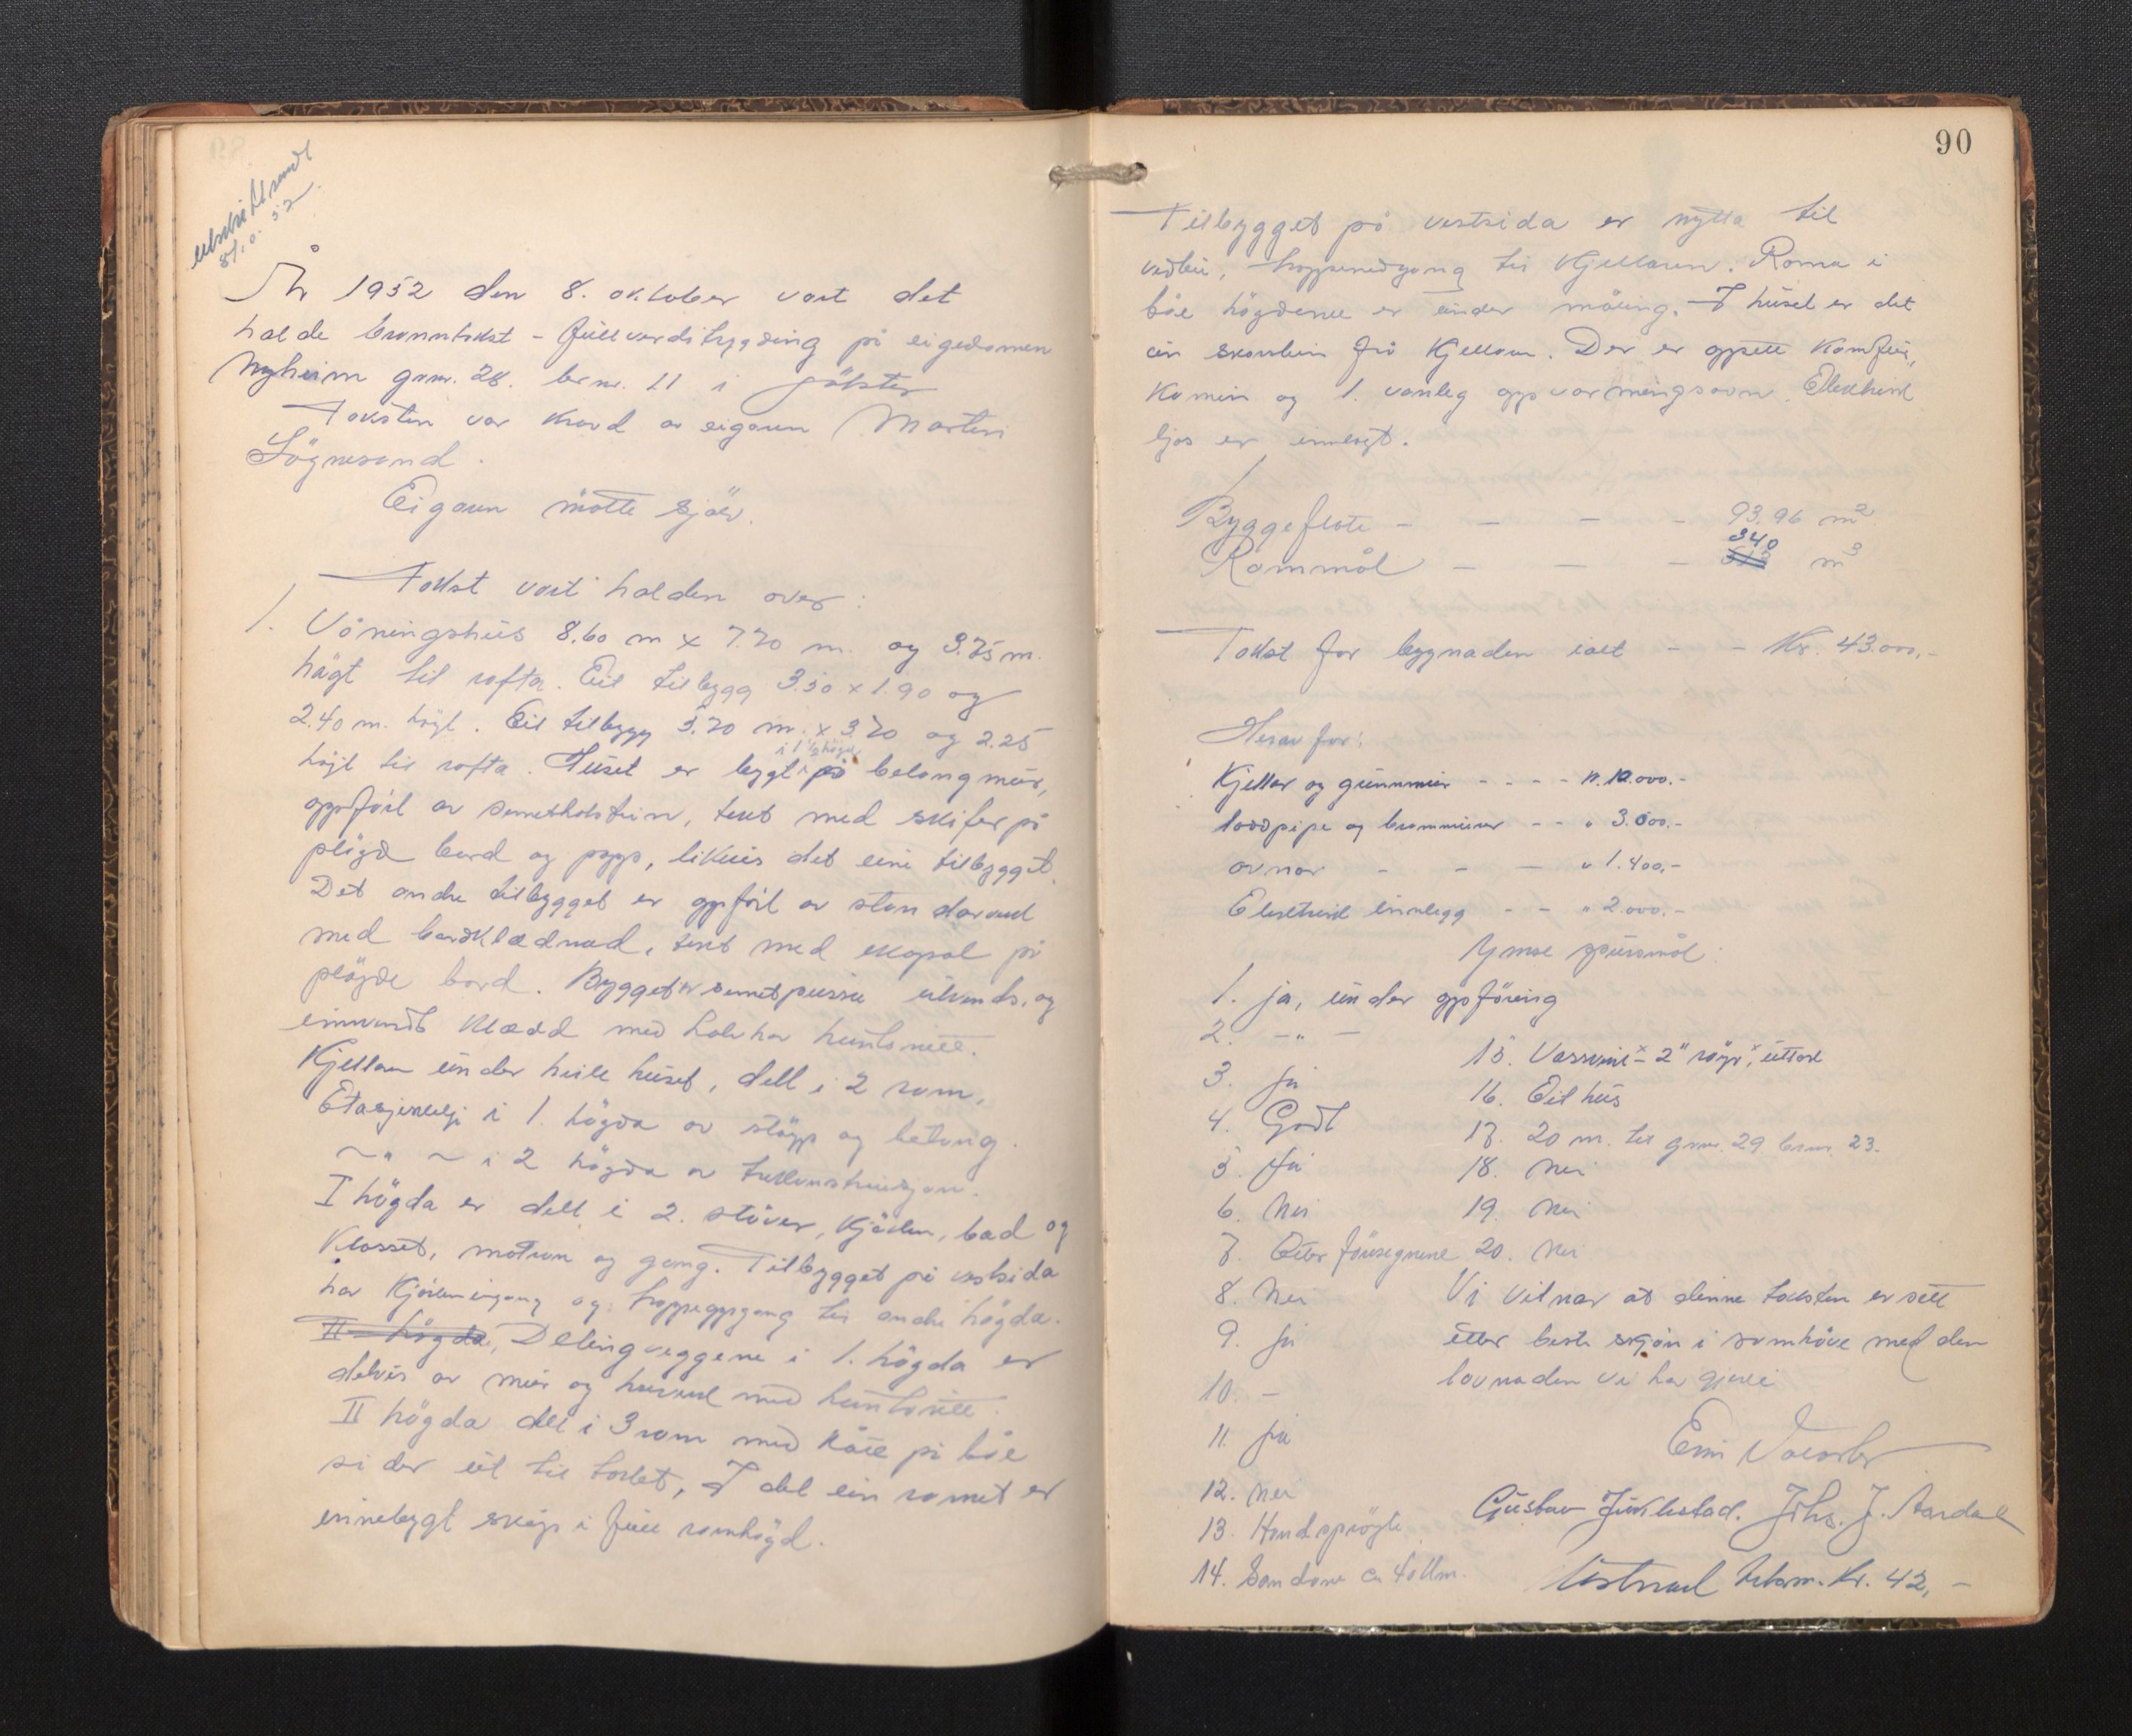 utskrift sendt
8/10. 52
År 1952 den 8. oktober vart det
halde branntakst - fullverditrygding på eigedomen
Nyheim gnr. 28. brnr. 11 i Jölster
Taksten var kravd av eigaren Martin
Sögnesand.
Eigaren mötte sjöv.
Takst vart halden over:
1. Våningshus 8.60 m x 7.70 m. og 3.75 m.
högt til rofta. Eit tilbygg 3.50 x 1.90 og
2.40 m. högt. Eit tilbygg 3.70 m. x 3.70 og 2.25
i 1 ½ högd
högt til rofta. Huset er bygt på betongmur,
oppfört av sementholstein, tekt med skifer på
plögd bord og papp, likeeis det eine tilbygget.
Det andre tilbygget er oppfört av standarverk
med bordklædnad, tekt med skopal på
plögde bord. Bygget er sementpussa utvends. og
innvendt klædd med huntonitt.
Kjellar under heile huset, delt i 2 rom.
Etasjeskilje i 1. högda av stöpp og betong.
~ " ~ i 2 högda av trekonstruksjon.
I högda er delt i 2. stover, kjöken, bad og
Klosset, matrom og gang. Tilbygget på vestsida
har Kjökeninngang og trappeoppgang til andre högda.
II högda, Delingveggene i 1. högda er
delvis av mur og med huntonitt.
II högda delt i 3 rom med kott på båe
sider ut til taket, I det ein romet er
innebygt skap i full romhögd.
90
Tilbygget på vestsida er nytta til
vedbu, trappenedgang til Kjellaren. Roma i
båe högdene er under måling. I huset er det
ein skorstein frå Kjellar. Der er oppsett Komfyr,
Kamin og 1. vanleg oppvarmingsovn. Elektrisk
ljos er innlagt.
Byggeflate - - - - 93.96 m²
340
Rommål - - - m³
Takst for bygnaden ialt - - Kr. 43.000,-
Herav for:
Kjellar og grunnmur - - - - " 10.000.-
Loddpipe og brannmurer - - " 3.000.-
ovnar - - - " 1.400,-
Elektrisk innlegg - - " 2.000.-
Ymse spursmål:
1. ja, under oppföring
2. - " -
3. ja
4. Godt
5. Ja
6. Nei
7. Etter föresegnene
8. Nei
9. ja
10. -
11. ja
12. Nei
13. Handspröyte
14. Sandane ca 40 km.
15. Vassveit - 2" röyr, uttak
16. Eit hus
17. 20 m. til gnr. 29 brnr. 23.
18. Nei
19. Nei
20. Nei
Vi vitnar at denne taksten er sett
etter beste skjön i samhöve med den
lovnaden vi har gjeve
Gustav Juklestad. Johs. J. Aardal
Kr. 42,-